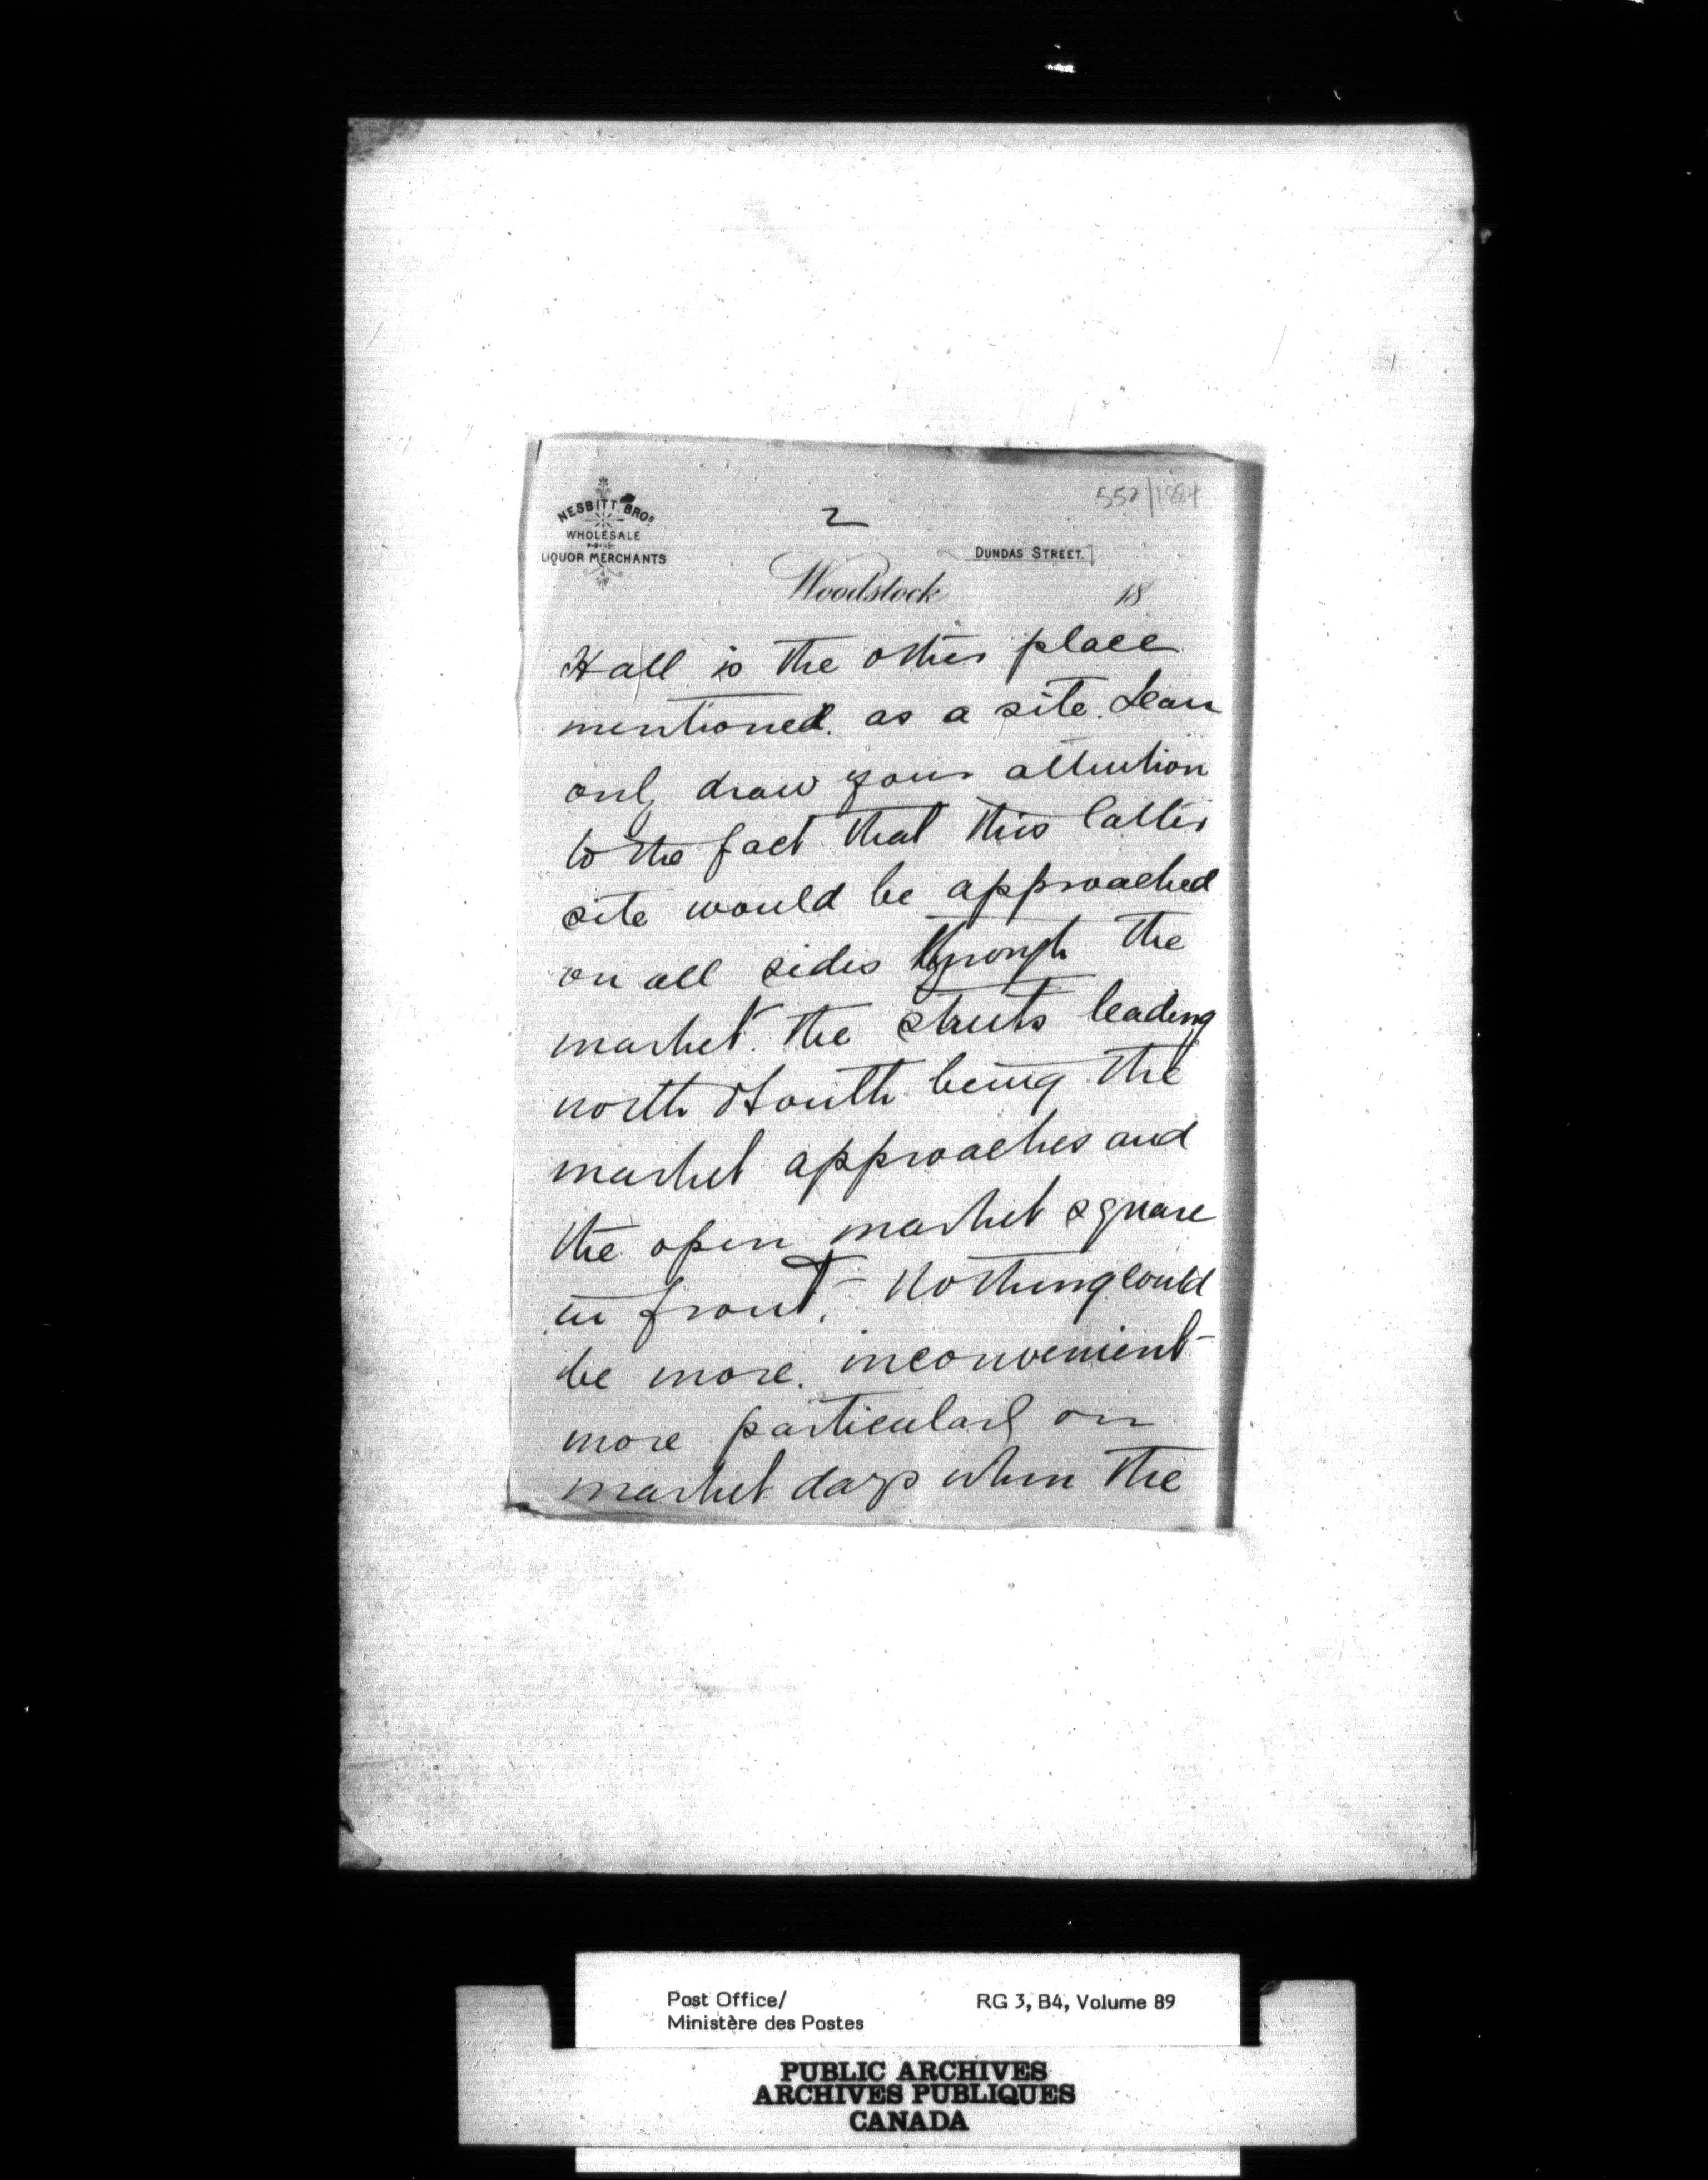 552/1884
NESBITT BROS
WHOLESALE
LIQUOR MERCHANTS
2
DUNDAS STREET.
Woodstock 18
Hall is the other place
mentioned. as a site. I can
only draw your attention
to the fact that this latter
site would be approached
on all sides through the
market. the streets leading
north & south being the
market approaches and
the open market square
in front. - Nothing could
be more. inconvenient
more particularly on
market days when the
Post Office/
Ministère des Postes
RG 3, B4, Volume 89
PUBLIC ARCHIVES
ARCHIVES PUBLIQUES
CANADA